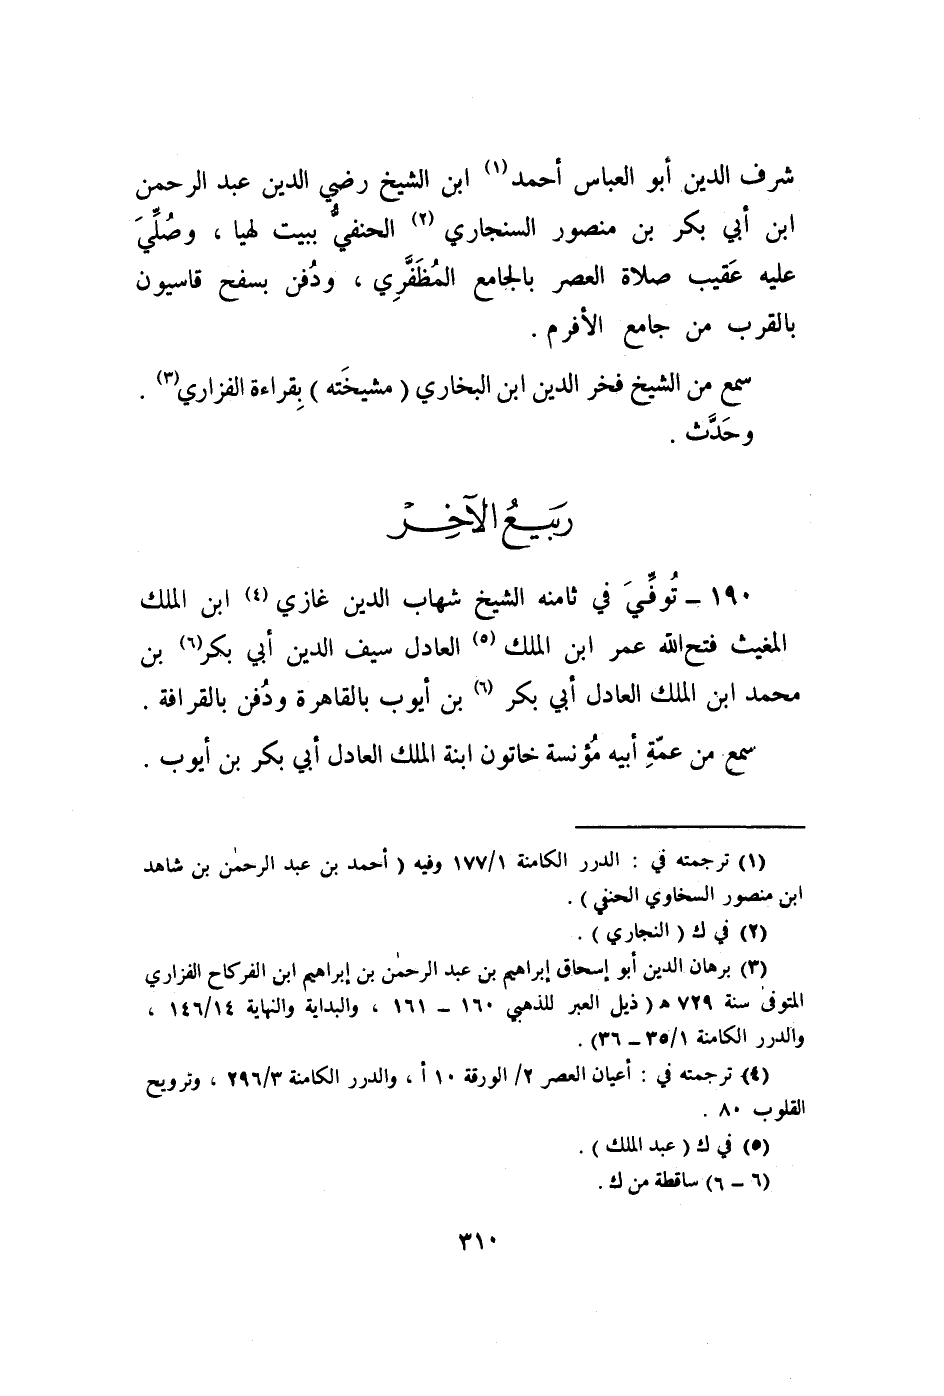 شرف الدين أبو العباس أحمد(١) ابن الشيخ رضي الدين عبد الرحمن
ابن أبي بكر بن منصور السنجاري (٢) الحنفيُّ ببيت لهيا ، وصُلِّيَ
عليه عَقيب صلاة العصر بالجامع المُظَفَّرِي ، ودُفن بسفح قاسيون
بالقرب من جامع الأفرم .
سمع من الشيخ فخر الدين ابن البخاري ( مشيخَته ) بِقراءة الفزاري(٣) .
وحَدَّث .
رَبيعُ الآخِر
١٩٠ ــ تُوفِّيَ في ثامنه الشيخ شهاب الدين غازي (٤) ابن الملك
المغيث فتح‌الله عمر ابن الملك (٥) العادل سيف الدين أبي بكر(٦) بن
محمد ابن الملك العادل أبي بكر (٦) بن أيوب بالقاهرة ودُفن بالقرافة .
سمع من عمّةِ أبيه مُؤنسة خاتون ابنة الملك العادل أبي بكر بن أيوب .
(١) ترجمته في : الدرر الكامنة ١٧٧/١ وفيه ( أحمد بن عبد الرحمٰن بن شاهد
ابن منصور السخاوي الحنفي ) .
(٢) في ك ( النجاري ) .
(٣) برهان الدين أبو إسحاق إبراهيم بن عبد الرحمٰن بن إبراهيم ابن الفركاح الفزاري
المتوفىٰ سنة ٧٢٩ ه ( ذيل العبر للذهبي ١٦٠ ــ ١٦١ ، والبداية والنهاية ١٤٦/١٤ ،
والدرر الكامنة ٣٥/١ ــ ٣٦) .
(٤) ترجمته في : أعيان العصر ٢/ الورقة ١٠ أ ، والدرر الكامنة ٢٩٦/٣ ، وترويح
القلوب ٨٠ .
(٥) في ك ( عبد الملك ) .
(٦ ــ ٦) ساقطة من ك .
٣١٠